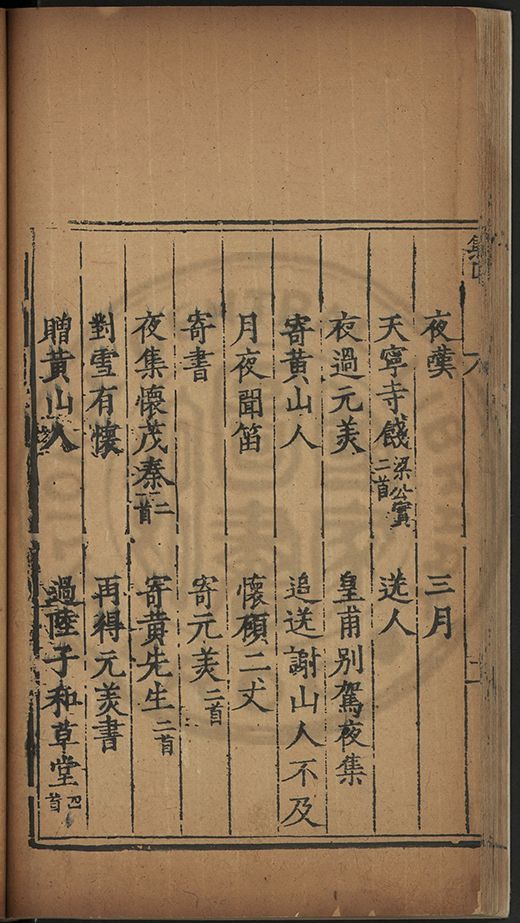 夜
三月
天寧寺餞梁公實二首
送人
夜過元美
皇甫別駕夜集
寄黄山人
追送謝山人不及
月夜聞笛
懷顧二丈
寄書
寄元美二首
夜集懷茂秦二首
寄黄先生二首
對雪有懷
再得元美書
贈黄山人
過陸子和草堂四首